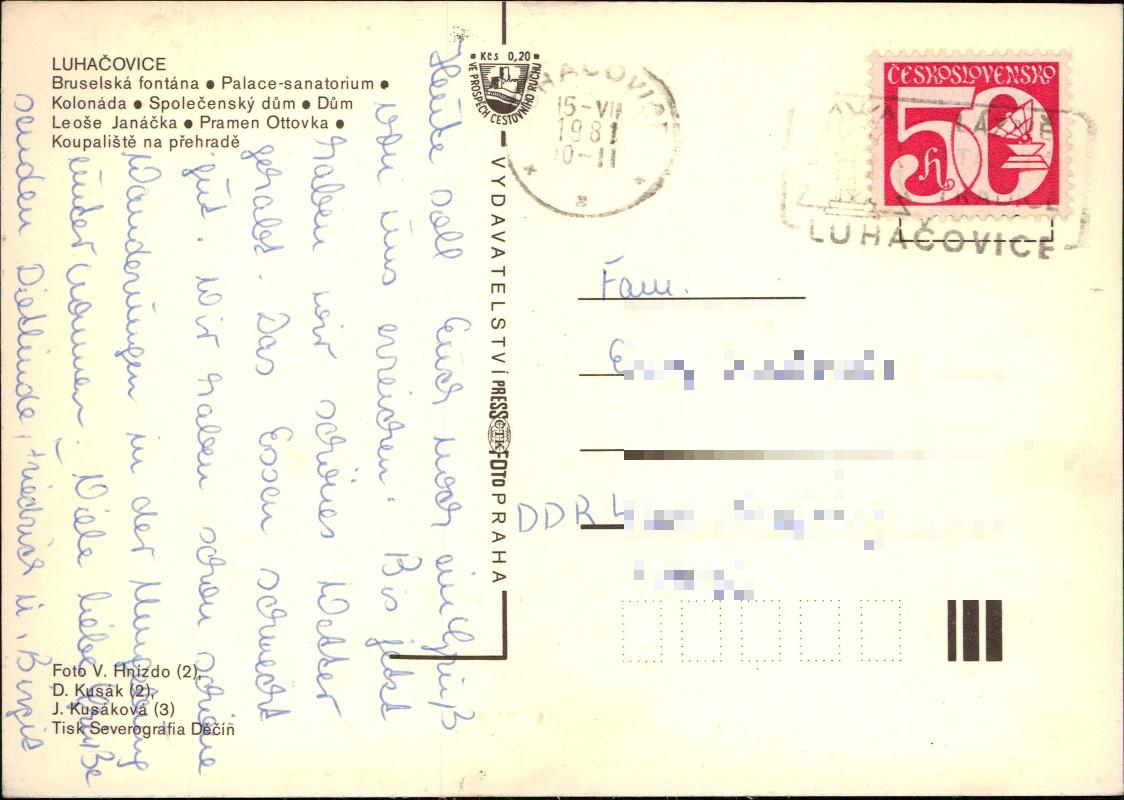 LUHAČOVICE
Bruselská fontána ● Palace-sanatorium ●
Kolonáda ● Společenský dům ● Dům
Leoše Janáčka ● Pramen Ottovka ●
Koupaliště na přehradě
Heute soll Euch noch ein Gruß
von uns erreichen. Bis jetzt
haben wir schönes Wetter
gehabt. Das Essen schmeckt
gut. Wir haben schon schöne
Wanderungen in der Umgebung
unternommen. Viele liebe Grüße
senden Dietlinde, Friedrich u. Birgit
Foto V. Hnízdo (2),
D. Kusák (2),
J. Kusáková (3)
Tisk Severografia Děčín
Kčs 0,20
VE PROSPĚCH CESTOVNÍHO RUCHU
VYDAVATELSTVÍ PRESSFOTO PRAHA
ČTK
LUHAČOVICE
15-VII
1981
10-11
ČESKOSLOVENSKO
50 h
LUHAČOVICE
Fam.
DDR